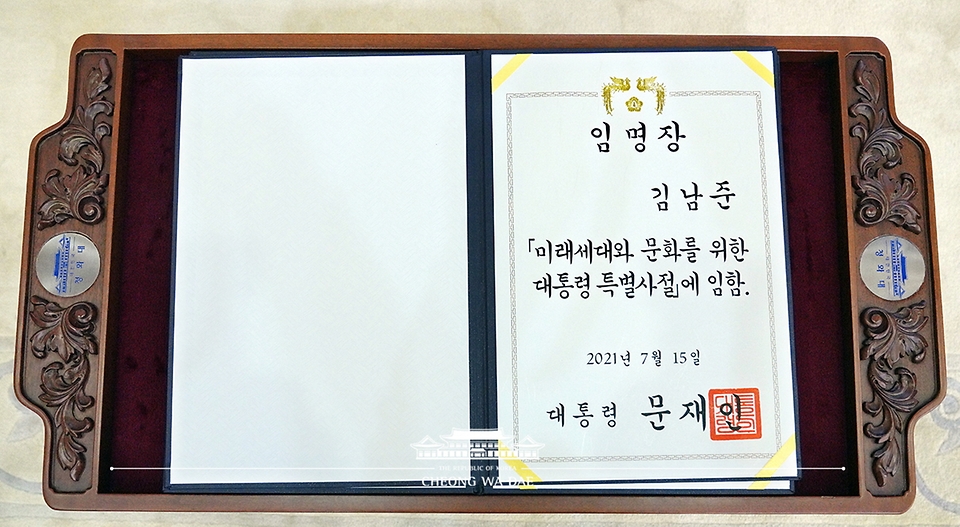 임명장
김남준
「미래세대와 문화를 위한
대통령 특별사절」에 임함.
2021년 7월 15일
대통령 문재인
청와대
청와대
THE REPUBLIC OF KOREA
CHEONG WA DAE